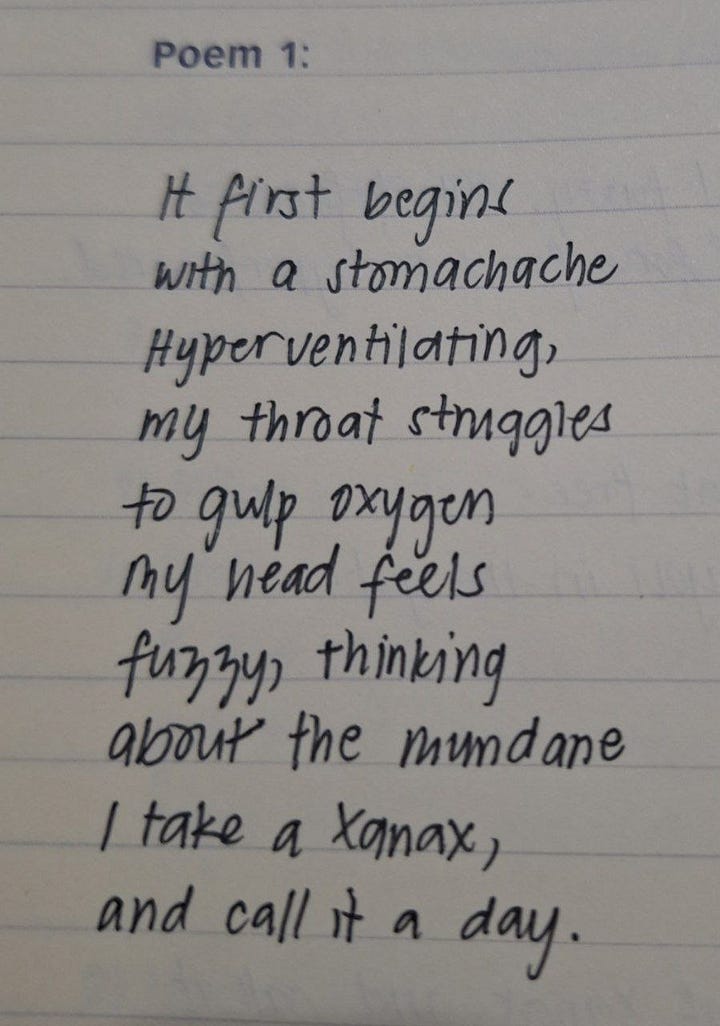 Poem 1:
It first begins
with a stomachache
Hyperventilating,
my throat struggles
to gulp oxygen
my head feels
fuzzy, thinking
about the mundane
I take a Xanax,
and call it a day.